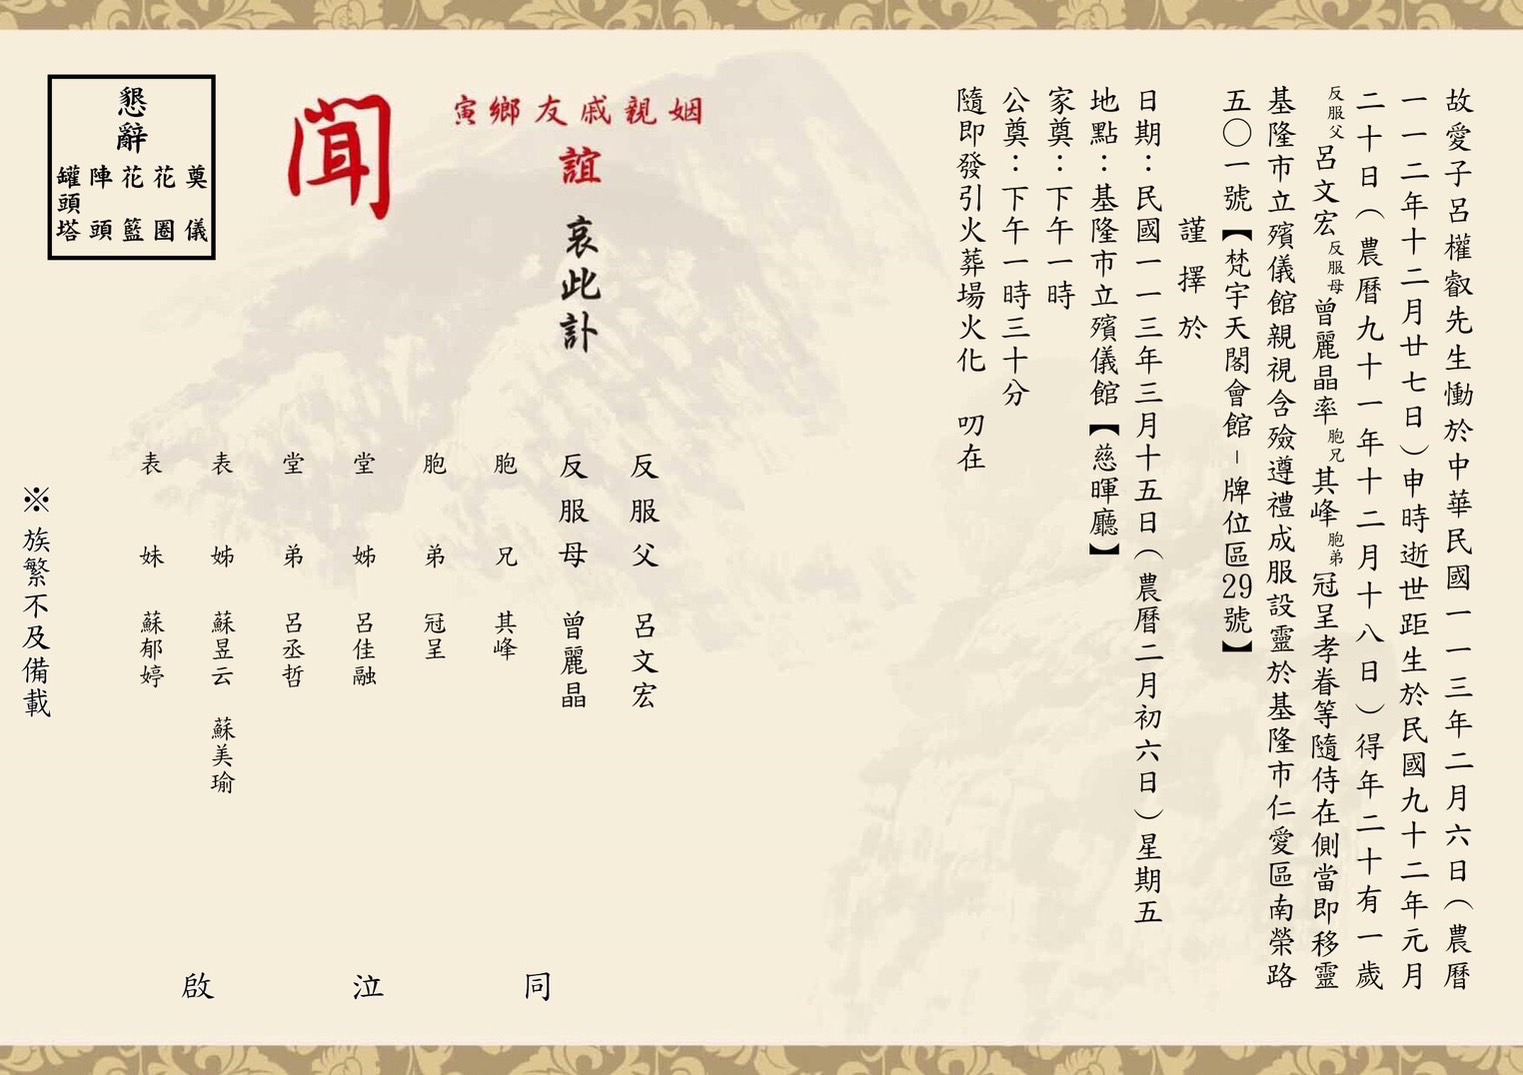 故愛子呂權叡先生慟於中華民國一一三年二月六日（農曆
一一二年十二月廿七日）申時逝世距生於民國九十二年元月
二十日（農曆九十一年十二月十八日）得年二十有一歲
反服父呂文宏反服母曾麗晶率胞兄其峰胞弟冠呈孝眷等隨侍在側當即移靈
基隆市立殯儀館親視含殮遵禮成服設靈於基隆市仁愛區南榮路
五〇一號【梵宇天閣會館–牌位區29號】
謹擇於
日期：民國一一三年三月十五日（農曆二月初六日）星期五
地點：基隆市立殯儀館【慈暉廳】
家奠：下午一時
公奠：下午一時三十分
隨即發引火葬場火化 叨在
姻親戚友鄉寅
誼 哀此訃
聞
反服父 呂文宏
反服母 曾麗晶
胞兄 其峰
胞弟 冠呈
堂姊 呂佳融
堂弟 呂丞哲
表姊 蘇昱云 蘇美瑜
表妹 蘇郁婷
同泣啟
懇辭
奠儀
花圈
花籃
陣頭
罐頭塔
※族繁不及備載